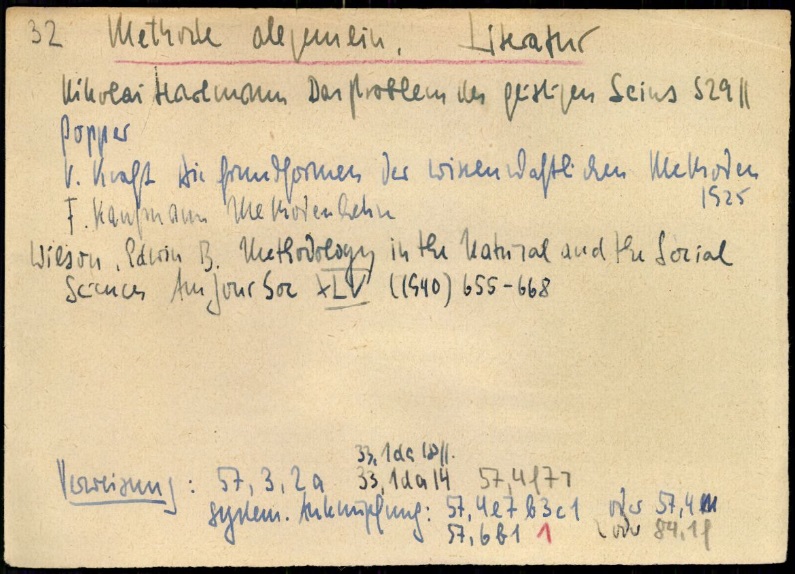 32 Methode allgemein. Literatur
Nikolai Hartmann Das Problem des geistigen Seins S29ff
Popper
V. Kraft Die Grundformen der wissenschaftlichen Methoden
1925
F. Kaufmann Methodenlehre
Wilson, Edwin B. Methodology in the Natural and the Social
Sciences Am Jour Soc XLV (1940) 655-668
33,1da
Verweisung: 57,3,2a 33,1da14 57,4f71
system. Anknüpfung: 57,4e7b3c1 oder 57,4m
57,6b1 1 oder 84,1f